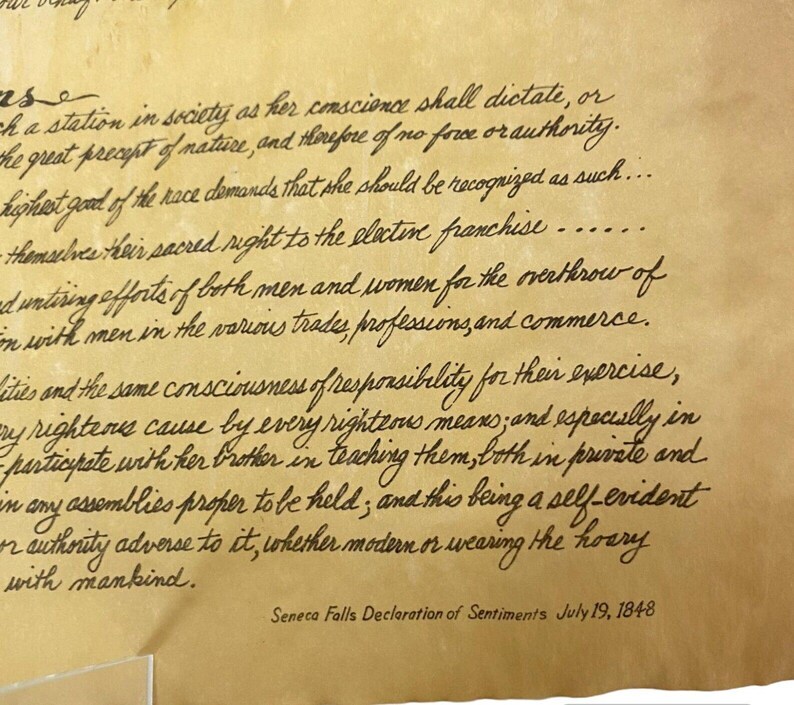 ns
ch a station in society as her conscience shall dictate, or
the great precept of nature, and therefore of no force or authority.
highest good of the race demands that she should be recognized as such...
themselves their sacred right to the elective franchise ......
d untiring efforts of both men and women for the overthrow of
on with men in the various trades, professions, and commerce.
lities and the same consciousness of responsibility for their exercise,
ry righteous cause by every righteous means; and especially in
participate with her brother in teaching them, both in private and
in any assemblies proper to be held; and this being a self-evident
or authority adverse to it, whether modern or wearing the hoary
with mankind.
Seneca Falls Declaration of Sentiments July 19, 1848